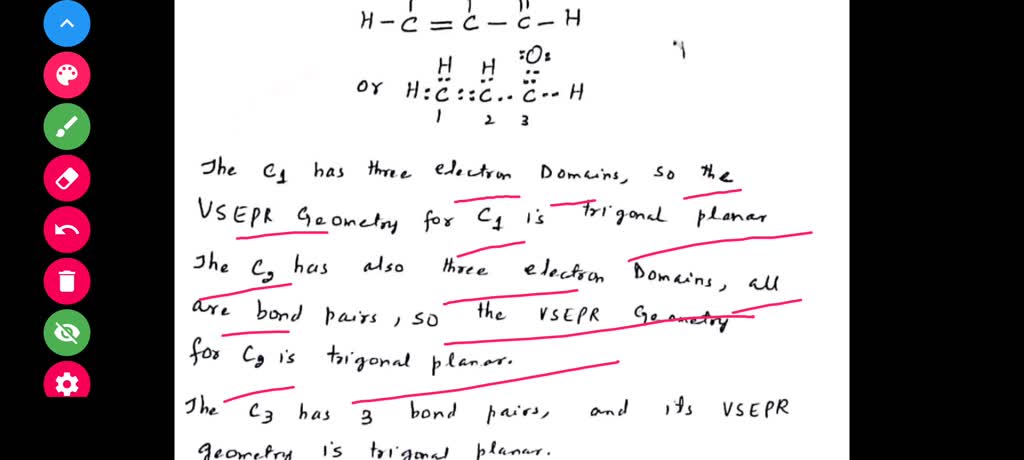 H - C = C - C - H
H H :O:
or H : C :: C .. C -- H
1 2 3
The C1 has three electron Domains, so the
VSEPR Geometry for C1 is trigonal planar
The C2 has also three electron Domains, all
are bond pairs, so the VSEPR Geometry
for C2 is trigonal planar.
The C3 has 3 bond pairs, and its VSEPR
geometry is trigonal planar.